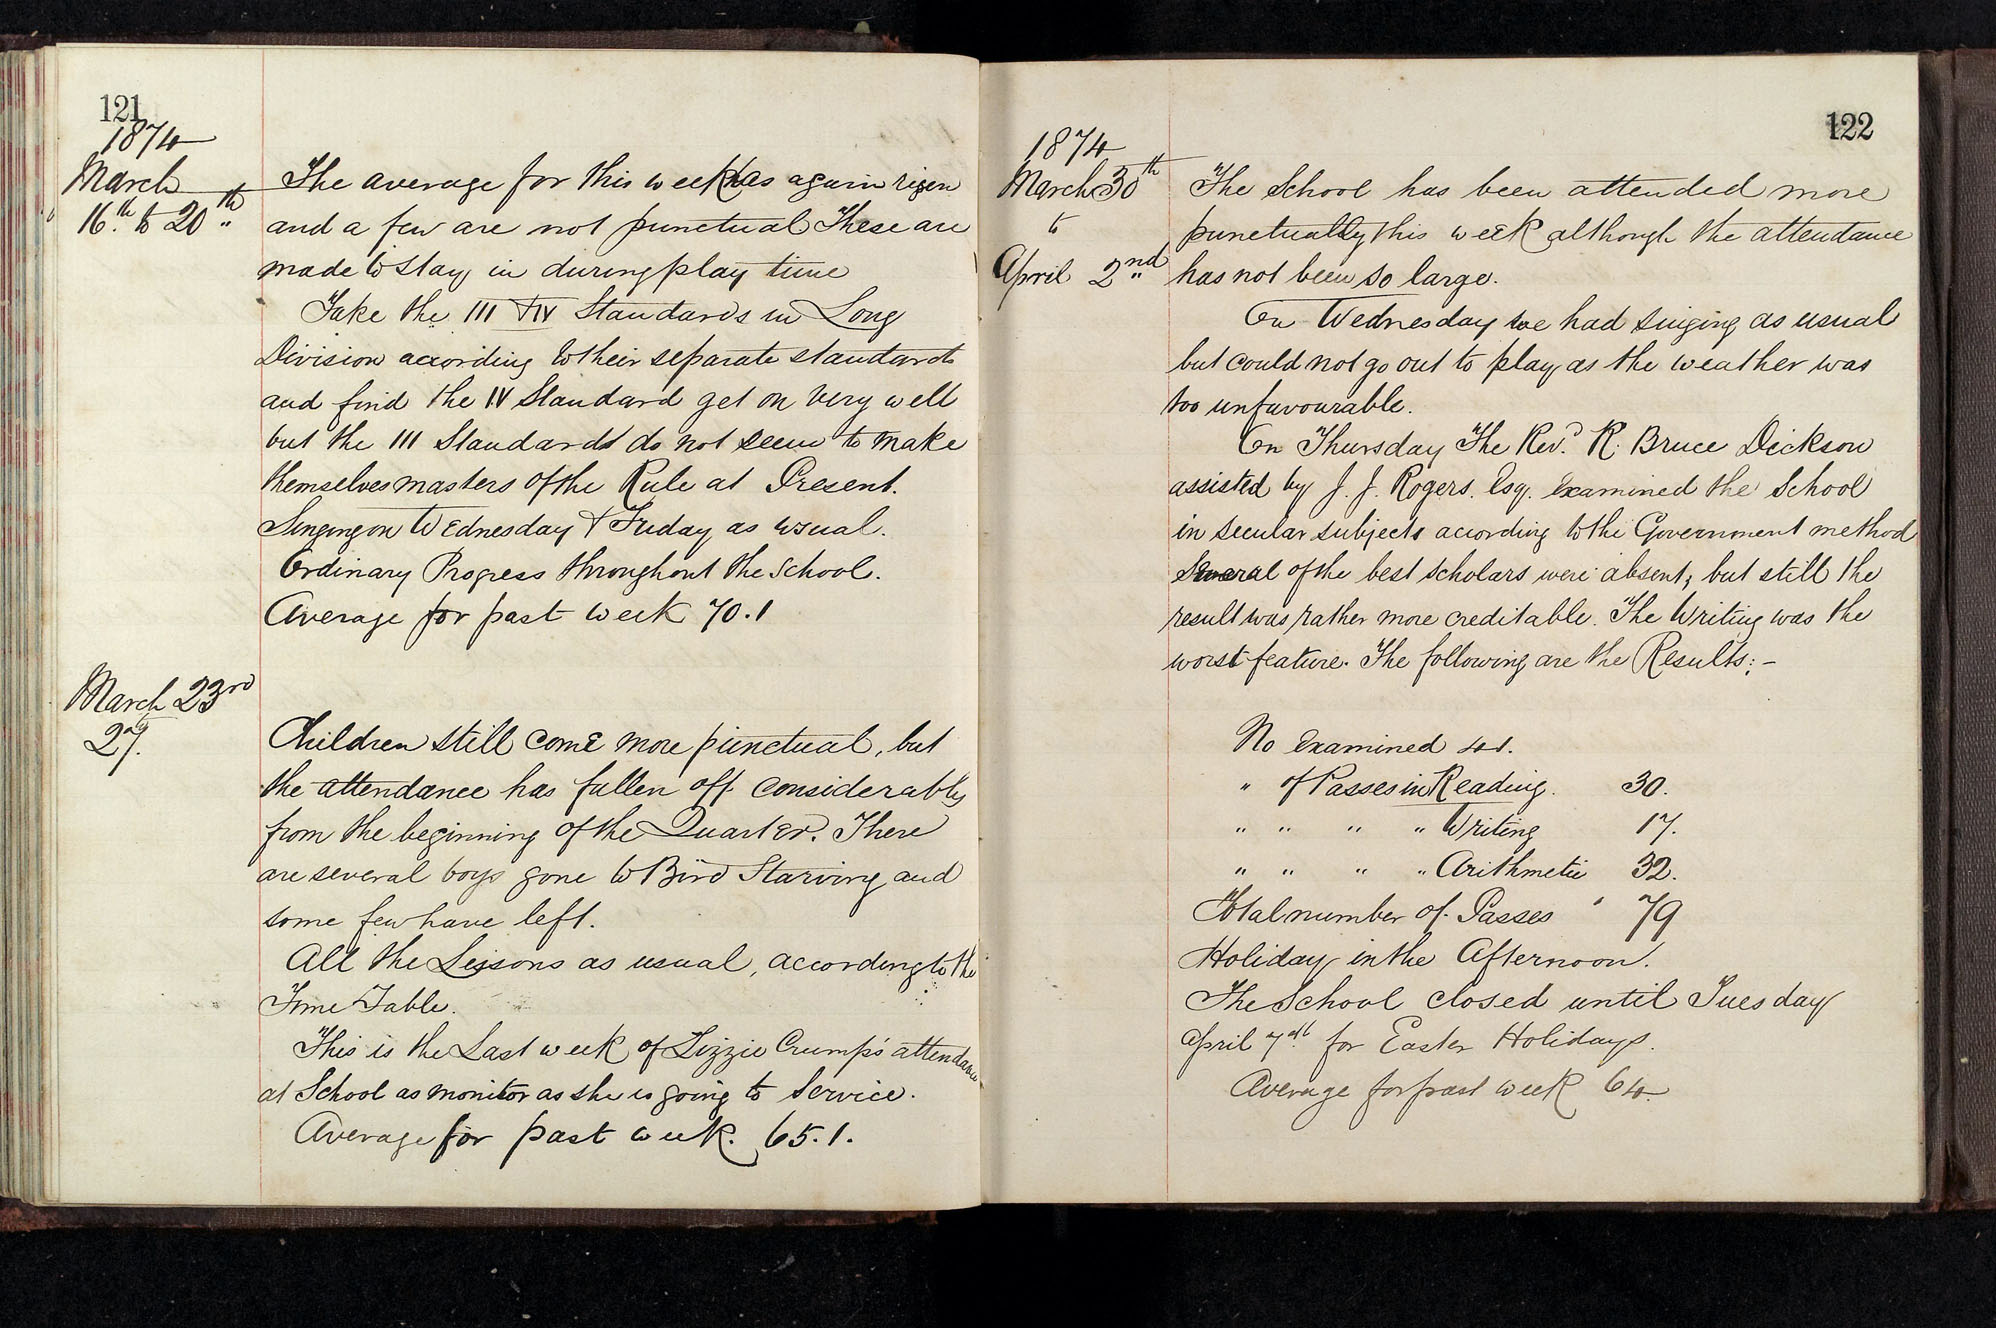 121
1874
March
16.th to 20th
The average for this week has again risen
and a few are not punctual These are
made to stay in during play time
Take the III & IV Standards in Long
Division according to their separate standards
and find the IV Standard get on very well
but the III Standards do not seem to make
themselves masters of the Rule at Present.
Singing on Wednesday & Friday as usual.
Ordinary Progress throughout the School.
Average for past week 70.1
March 23rd
27th
Children still come more punctual, but
the attendance has fallen off considerably
from the beginning of the Quarter. There
are several boys gone to Bird Starving and
some few have left.
All the Lessons as usual, according to the
Time Table.
This is the Last week of Lizzie Crump's attendance
at School as monitor as she is going to Service.
Average for past week. 65.1.
122
1874
March 30th
to
April 2nd
The School has been attended more
punctually this week although the attendance
has not been so large.
On Wednesday we had singing as usual
but could not go out to play as the weather was
too unfavourable.
On Thursday The Revd. R. Bruce Dickson
assisted by J. J. Rogers. Esq. examined the School
in secular subjects according to the Government method
Several of the best scholars were absent; but still the
result was rather more creditable. The Writing was the
worst feature. The following are the Results:-
No examined 41.
" of Passes in Reading. 30.
" " " " Writing 17.
" " " " Arithmetic 32.
Total number of Passes " 79
Holiday in the Afternoon.
The School closed until Tuesday
April 7th for Easter Holidays.
Average for past week 64.